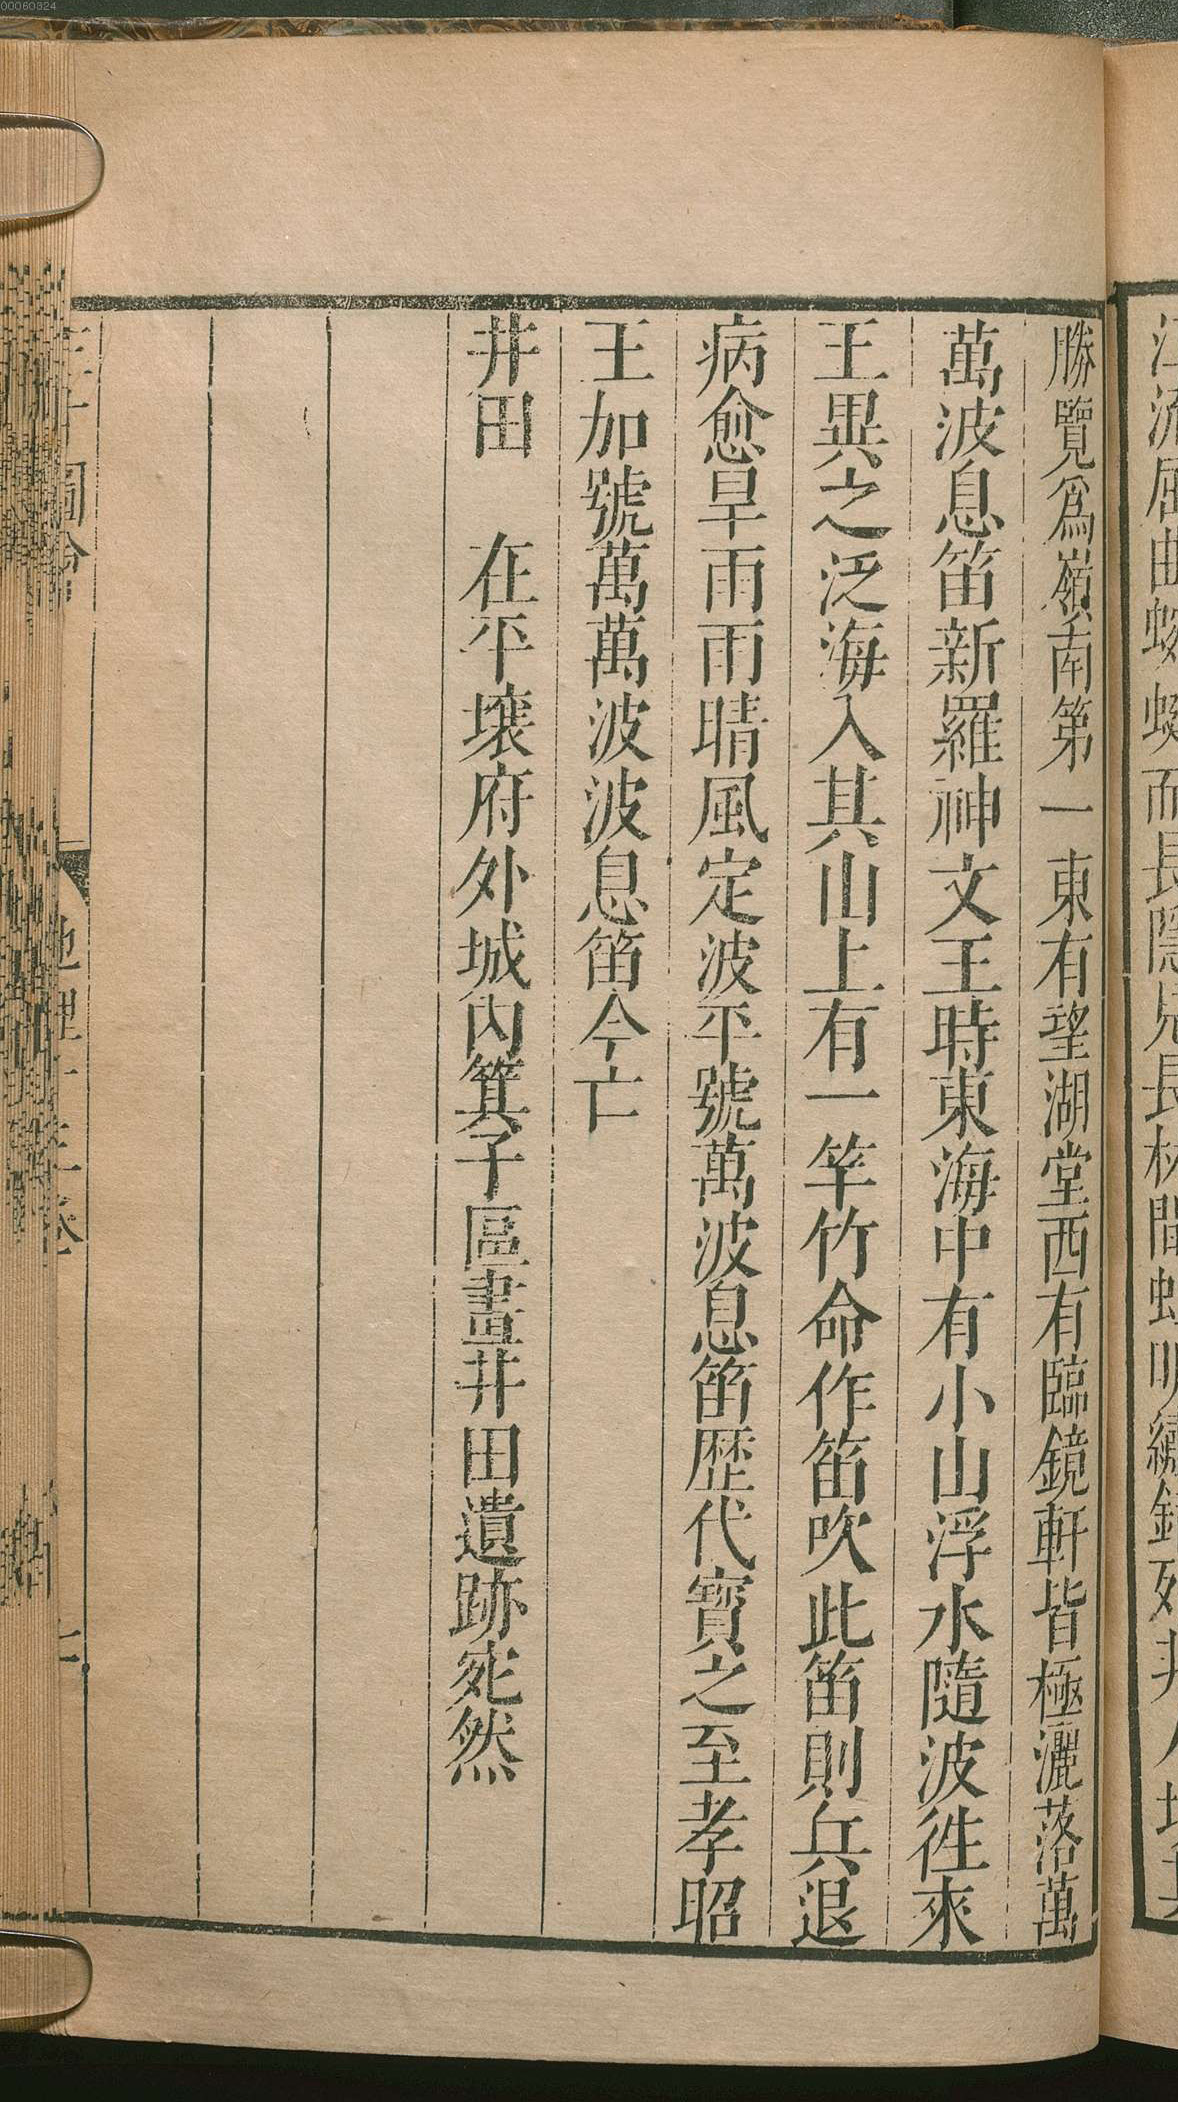 勝覽爲嶺南第一東有望湖堂西有臨鏡軒皆極灑落萬
萬波息笛新羅神文王時東海中有小山浮水隨波徃來
王異之泛海入其山上有一竿竹命作笛吹此笛則兵退
病愈旱雨雨晴風定波平號萬波息笛歴代寳之至孝昭
王加號萬萬波波息笛今亡
井田　在平壤府外城內箕子區畫井田遺跡宛然
00060324